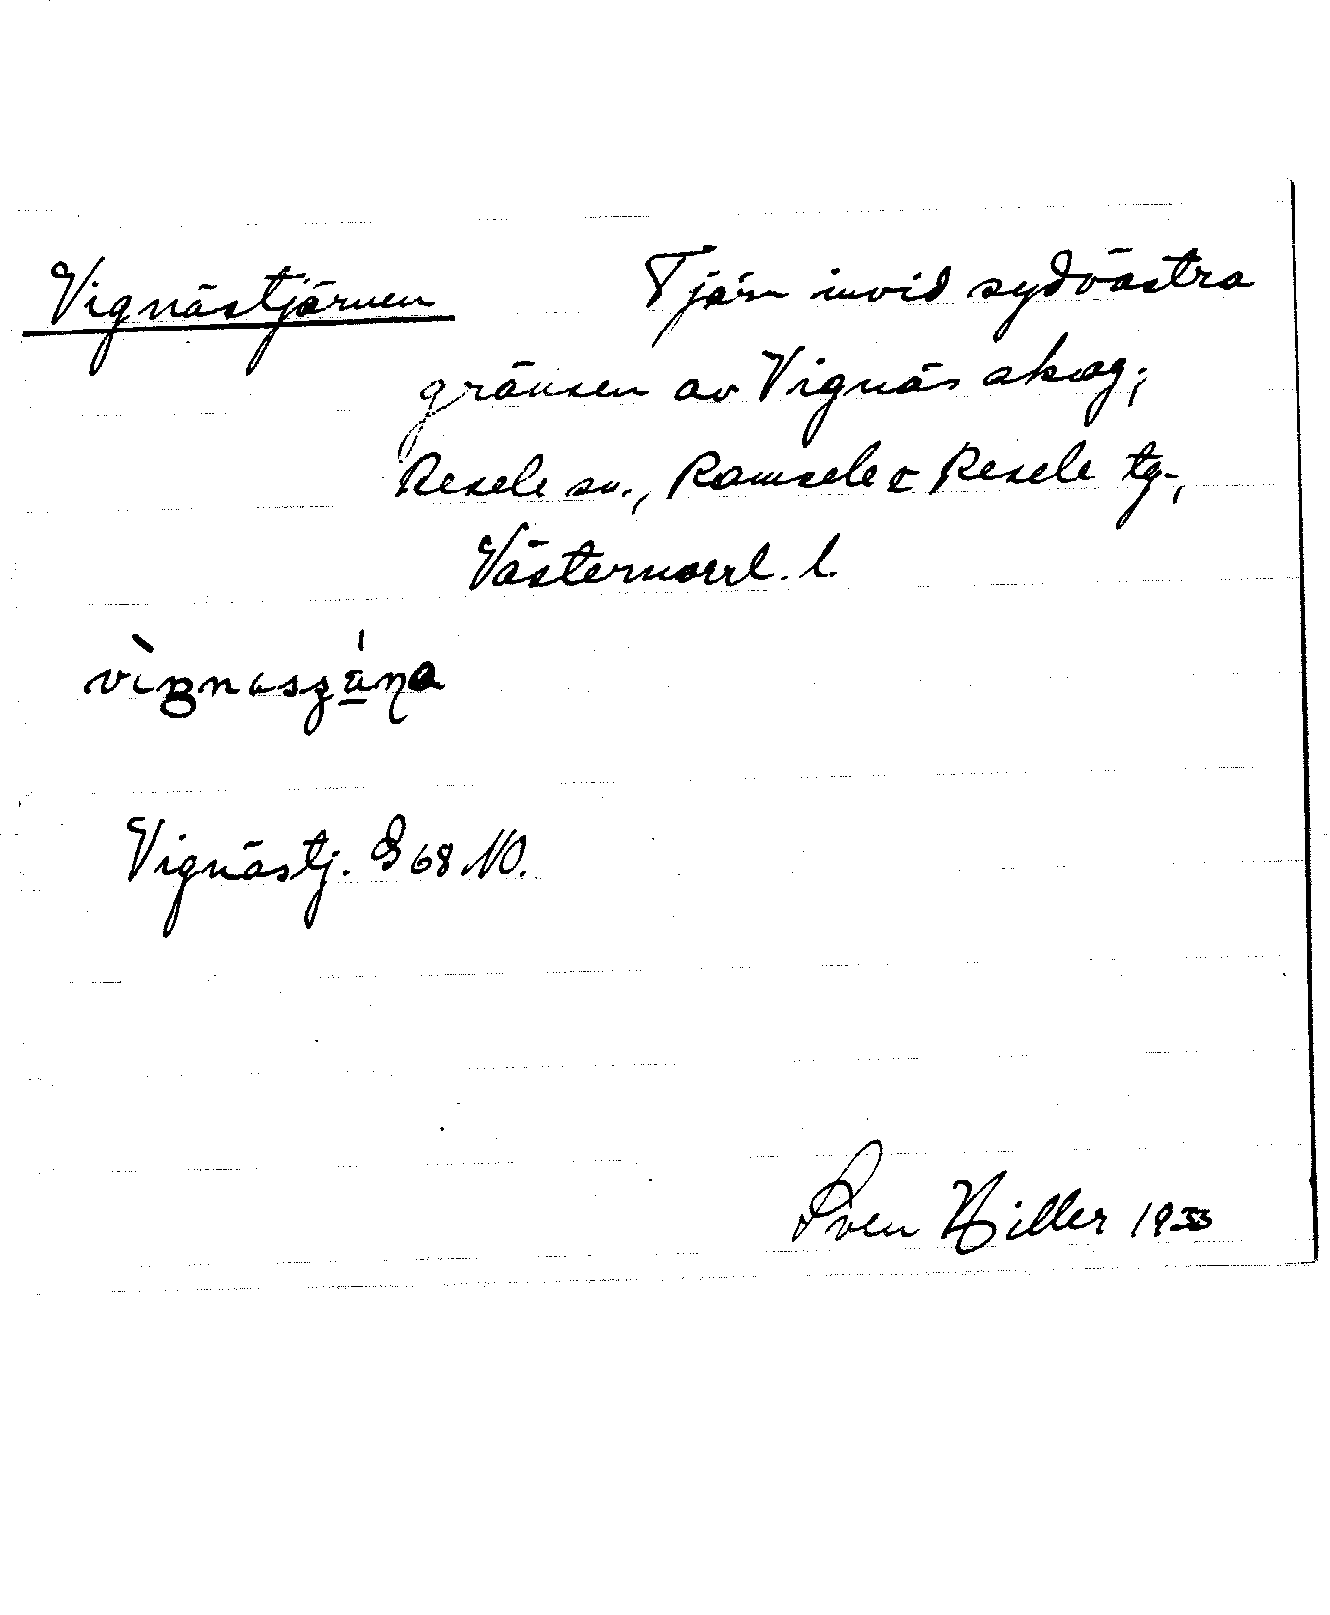 Vignästjärnen Tjärn invid sydvästra
gränsen av Vignäs skog;
Resele sn., Ramsele o Resele tg.,
Västernorrl. l.
Vignästj. G 68 NO.
Sven Hiller 1933